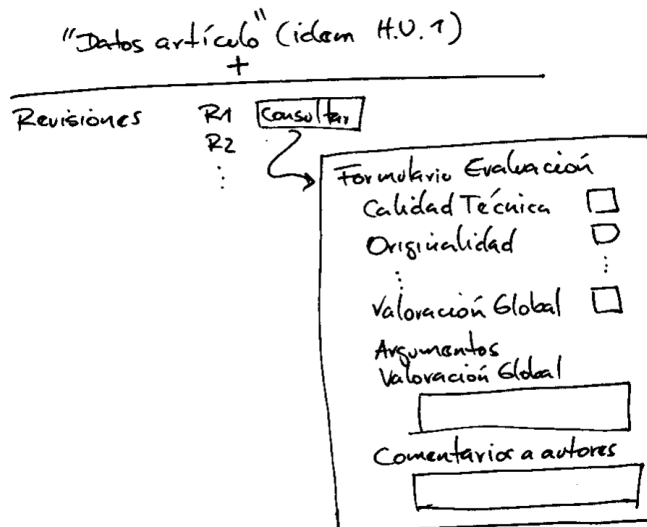 "Datos artículo" (idem H.U.1)
+
Revisiones R1 Consultar
R2
Formulario Evaluación
Calidad Técnica
Originalidad
Valoración Global
Argumentos
Valoración Global
Comentarios a autores